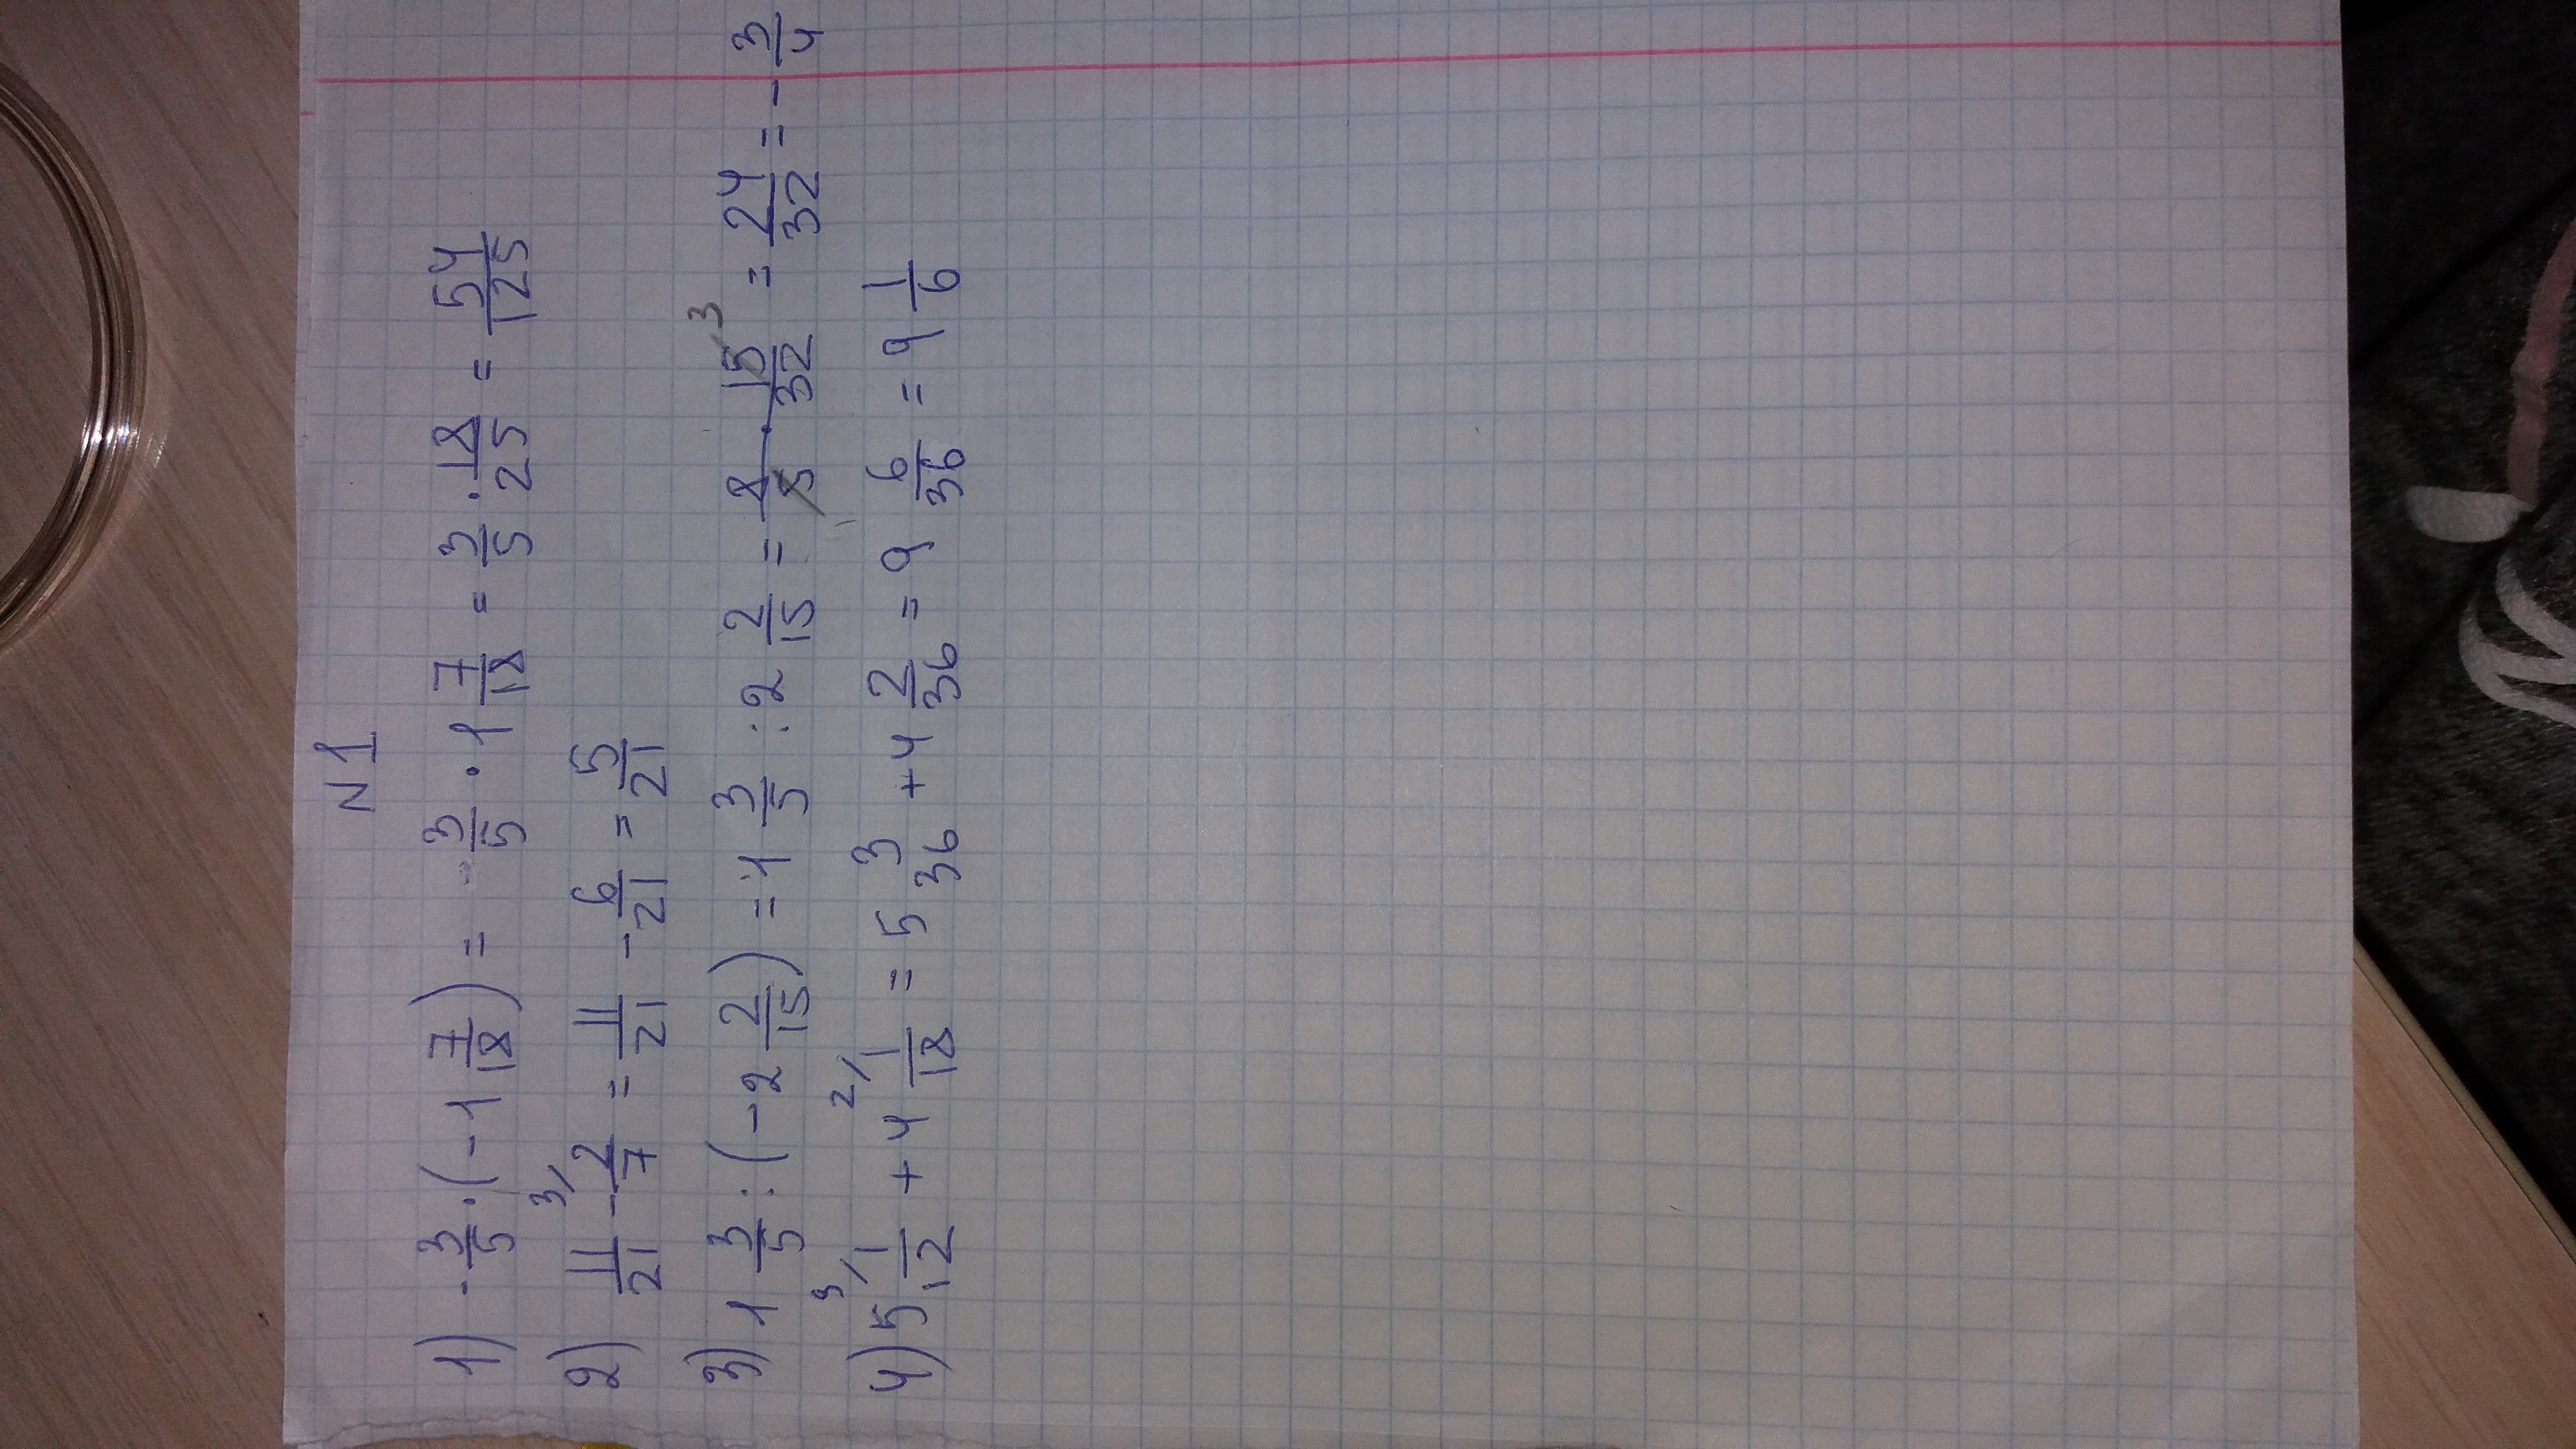 N 1
1) -3/5 · (-1 7/18) = 3/5 · 1 7/18 = 3/5 · 18/25 = 54/125
2) 11/21 - 2/7 3/ = 11/21 - 6/21 = 5/21
3) 1 3/5 : (-2 2/15) = 1 3/5 : 2 2/15 = 8/5 · 15/32 3 = 24/32 = - 3/4
4) 5 1/12 3/ + 4 1/18 2/ = 5 3/36 + 4 2/36 = 9 6/36 = 9 1/6